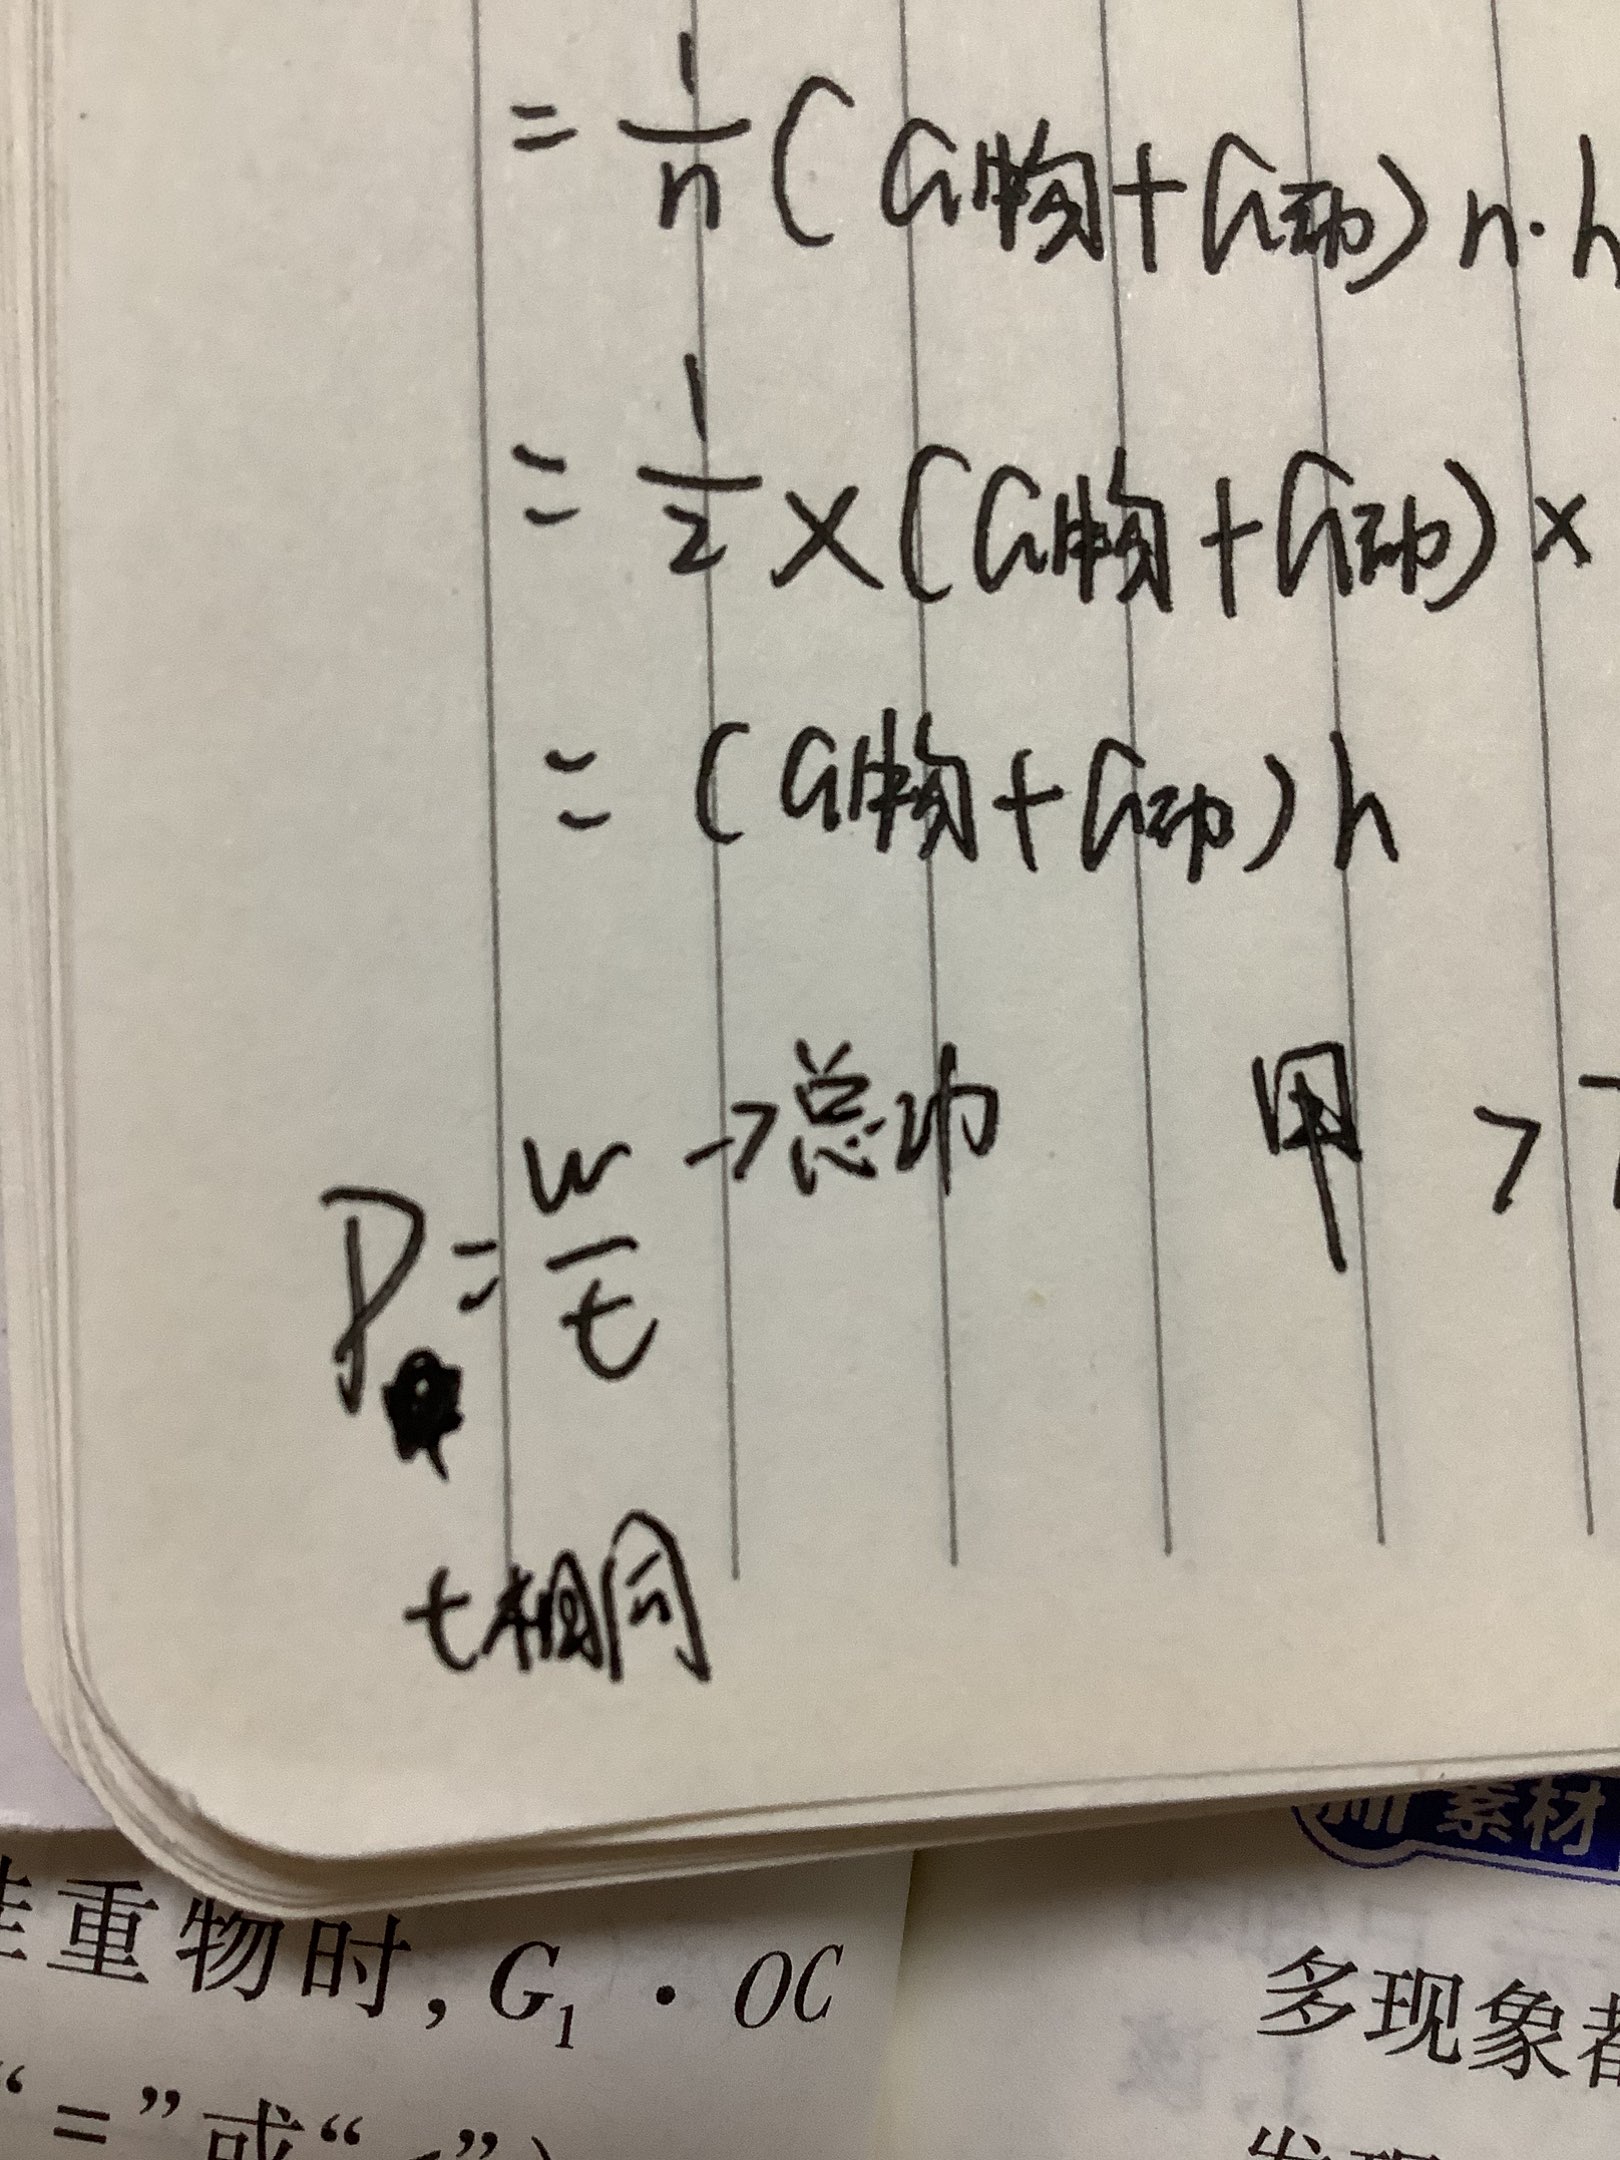 = 1/n (G物+G动) n·h
= 1/2 × (G物+G动) ×
= (G物+G动) h
P = W/t → 总功 甲 >
t相同
素材
重物时, G₁ · OC
多现象都
“=”或“
发现